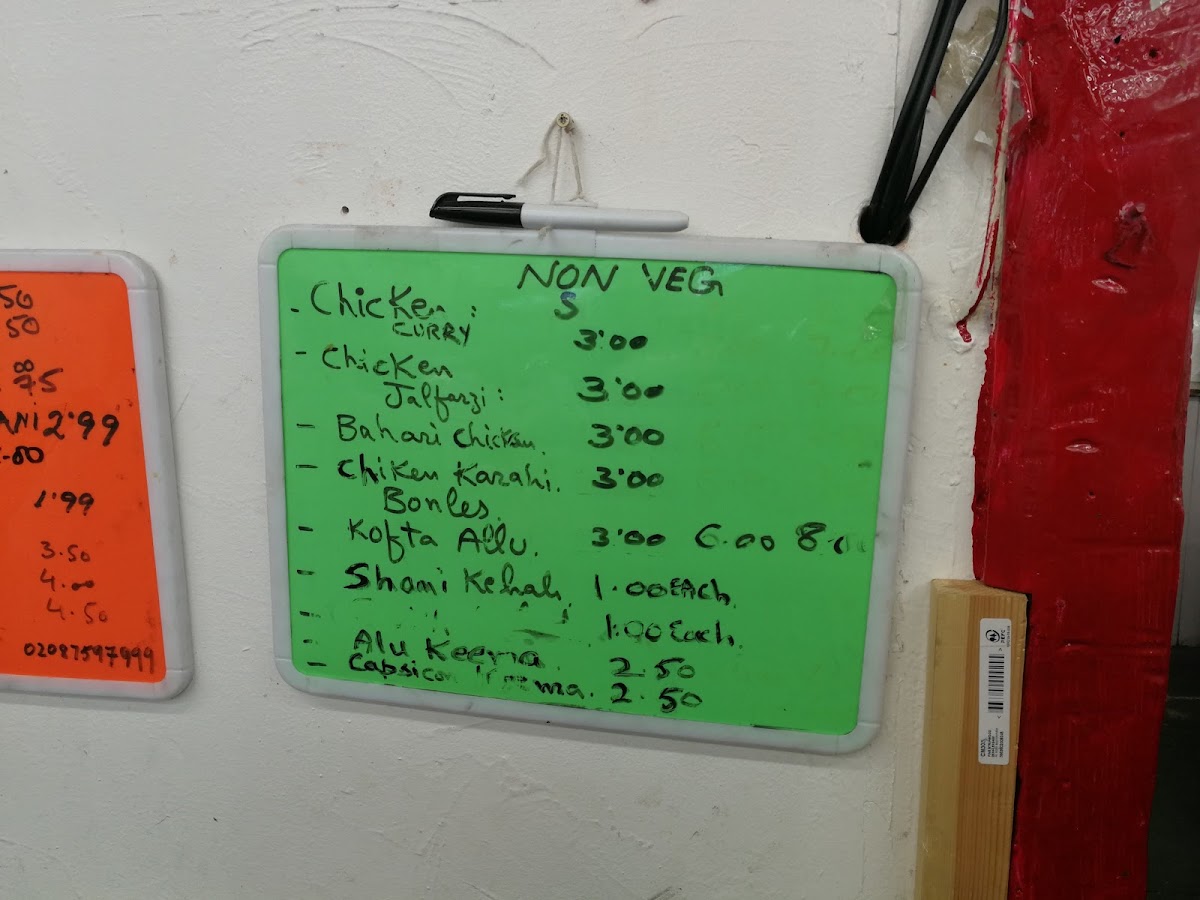 50
75
ANI 2.99
1.99
3.50
4.00
4.50
02087597999
NON VEG
S
- Chicken :
CURRY 3.00
- Chicken
Jalfarzi : 3.00
- Bahari Chicken 3.00
- Chiken Karahi. 3.00
Bonles
- Kofta Allu. 3.00 6.00
- Shami Kebab 1.00 EACh
- 1.00 Each
- Alu Keema 2.50
- 2.50